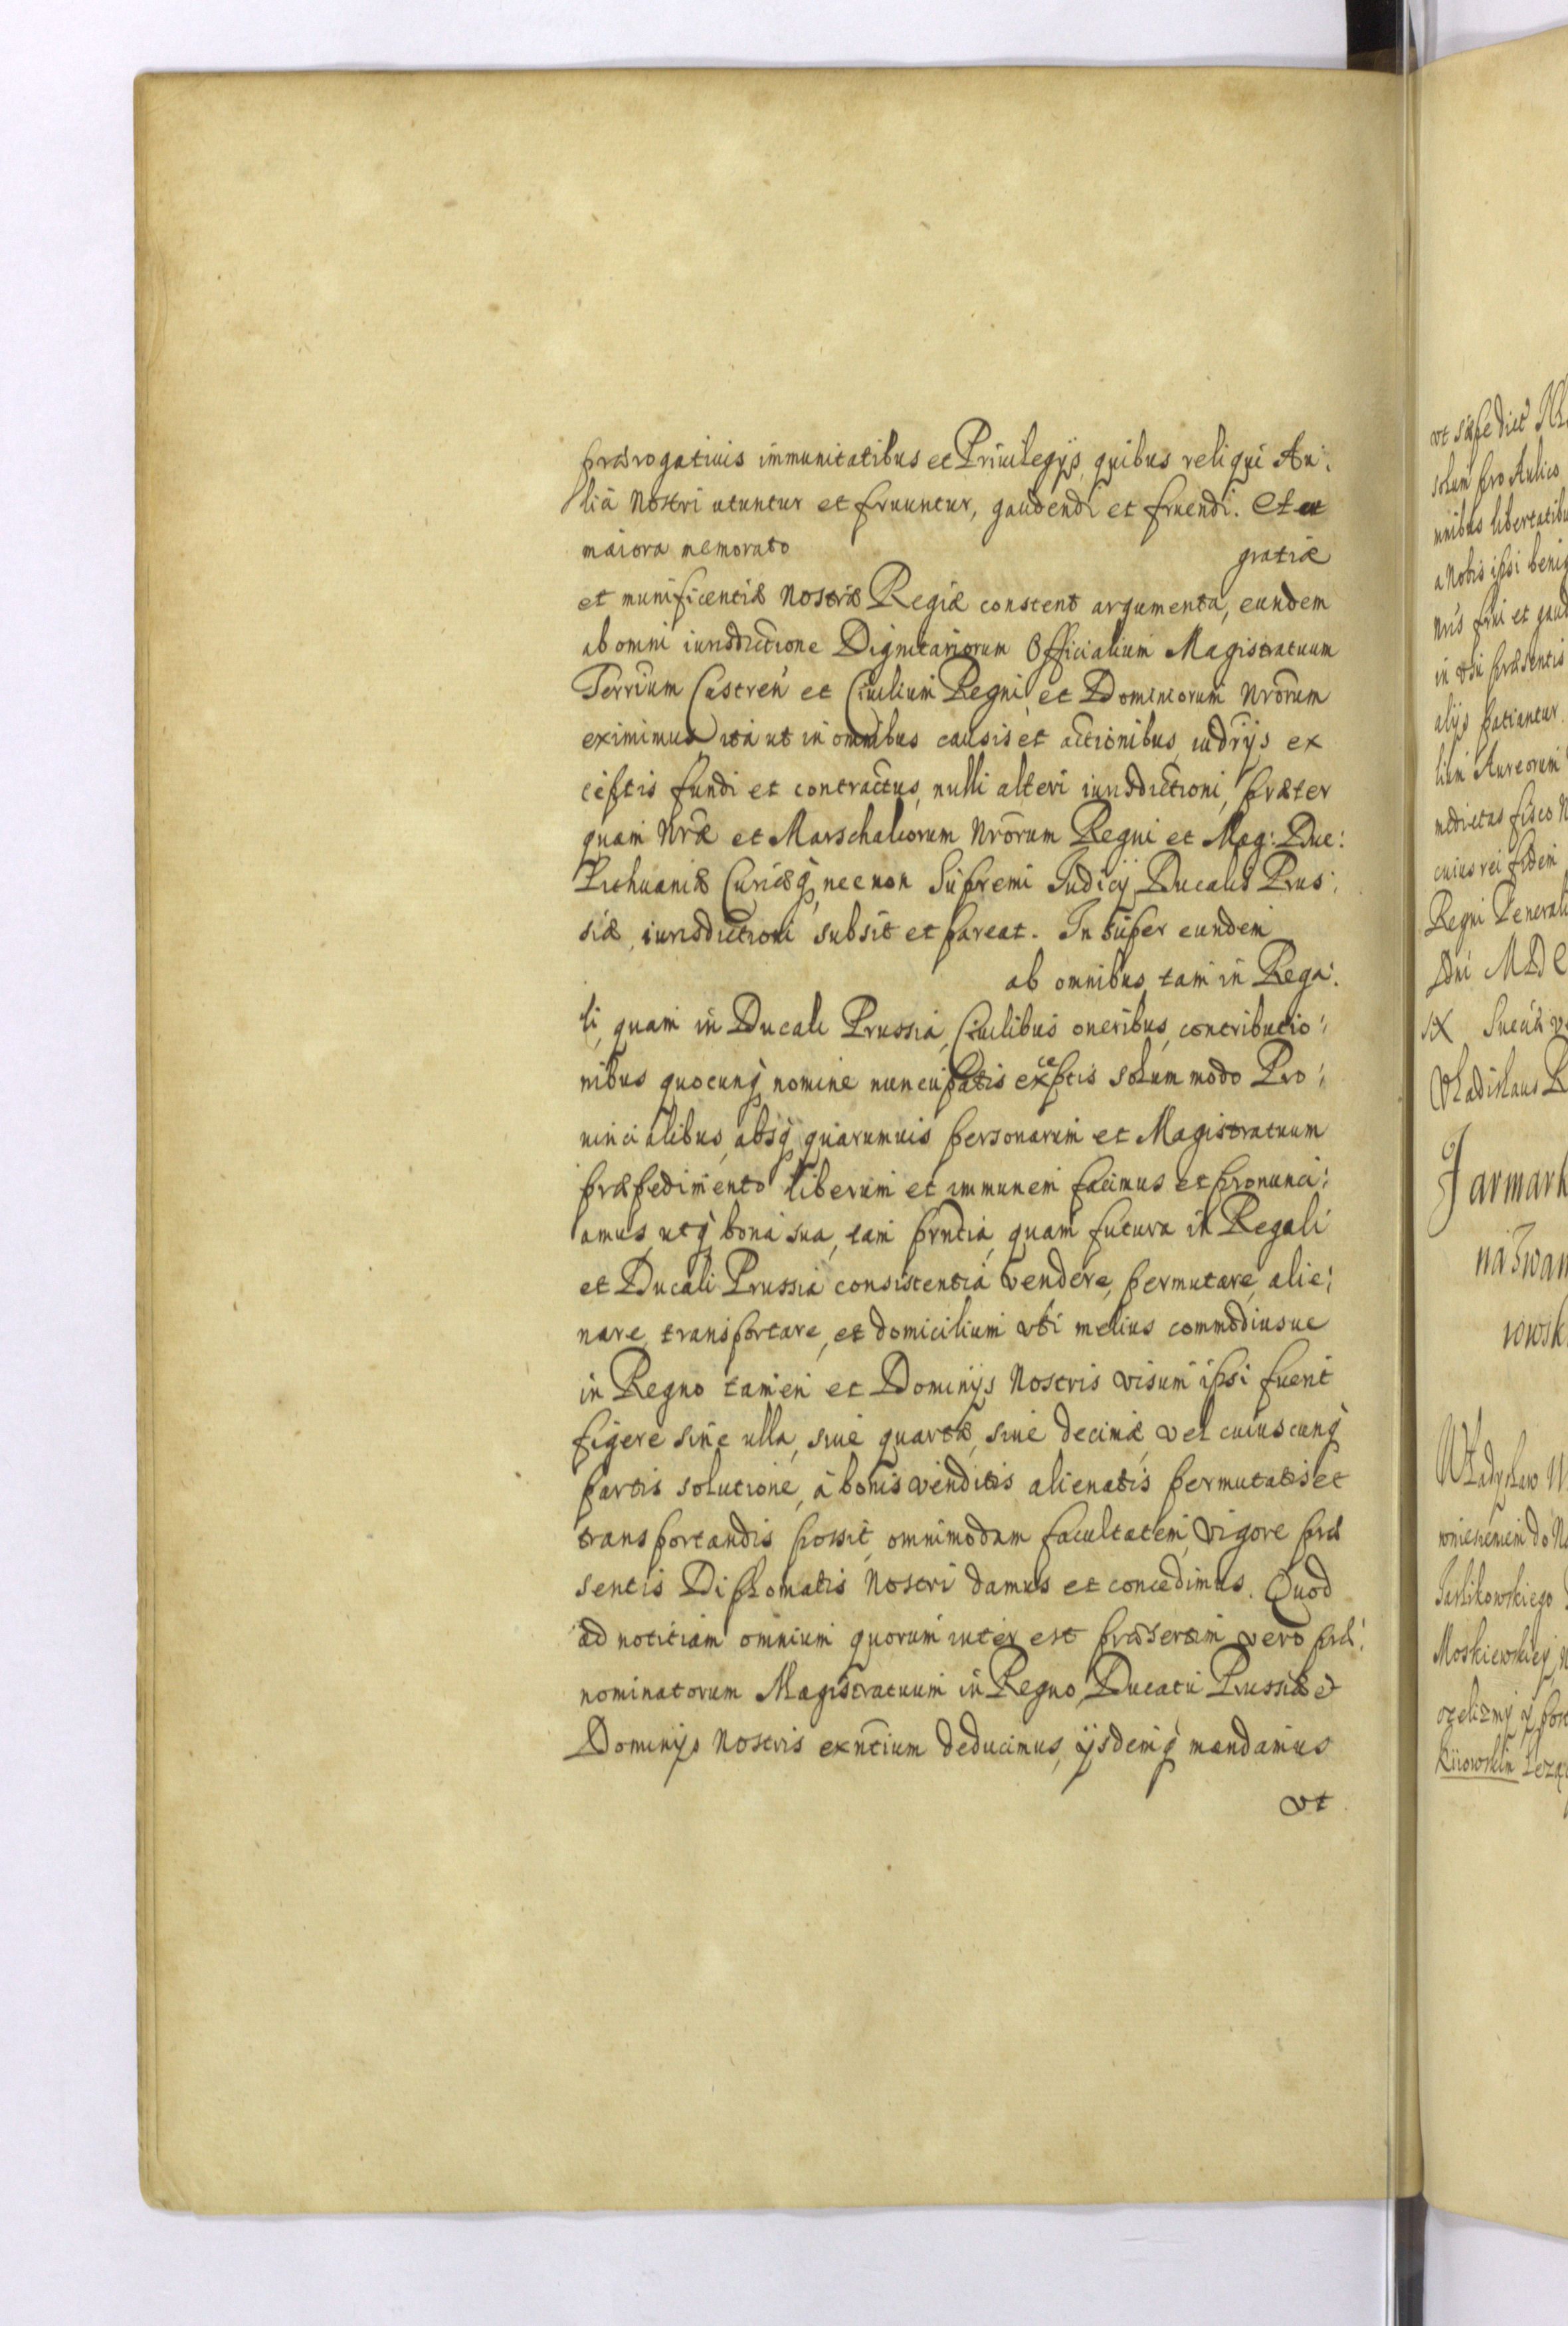 prærogativis immunitatibus et Privilegijs, quibus reliqui Au:
lici Nostri utuntur et fruuntur, gaudendi et fruendi. Et ut
maiora memorato gratiæ
et munificentiæ Nostræ Regiæ constent argumenta, eundem
ab omni iurisdictione Dignitariorum Officialium Magistratuum
Terrium Castren et Civilium Regni et Dominiorum Nrorum
eximimus, ita ut in omnibus causis et actionibus iudrijs ex
ceptis fundi et contractus, nulli alteri iurisdictioni, præter
quam Nræ et Marschalcorum Nrorum Regni et Mag: Duc:
Lithuaniæ Curiæq, nec non Supremi Judicij Ducalis Prus:
siæ, iurisdictioni subsit et pareat. Insuper eundem
ab omnibus tam in Rega:
li, quam in Ducali Prussia, Civilibus oneribus, contributio:
nibus quocunq nomine nuncupatis exceptis solummodo Pro:
uincialibus, absq quarumuis personarum et Magistratuum
præpedimento liberum et immunem facimus et pronunci:
amus, utq bona sua, tam prntia, quam futura in Regali
et Ducali Prussia consistentia vendere, permutare, alie:
nare, transportare, et domicilium vbi melius commodiusue
in Regno tamen et Dominijs Nostris visum ipsi fuerit
figere sine ulla, siue quartæ, siue decimæ, vel cuiuscunq
partis solutione, à bonis venditis alienatis permutatis et
transportandis possit, omnimodam facultatem, vigore præ
sentis Diplomatis Nostri damus et concedimus. Quod
ad notitiam omnium quorum inter est præsertim vero præ:
nominatorum Magistratuum in Regno, Ducatu Prussiæ et
Dominijs Nostris exntium deducimus, ijsdemq mandamus
vt
vt sæpe dict
solum pro Aulico
mnibus libertatibu
a Nobis ipsi benig
nris frui et gaud
in præsentis
alijs patiantur.
lium Aureorum
medietas fisco N
cuius rei fidem
Regni Generali
Dni MDC
Sueciæ v
Vladislaus R
Jarmark
na Iwan
rowsk
Władysław
wniesieniem do Na
Moskiewskiey
Kiiowskim